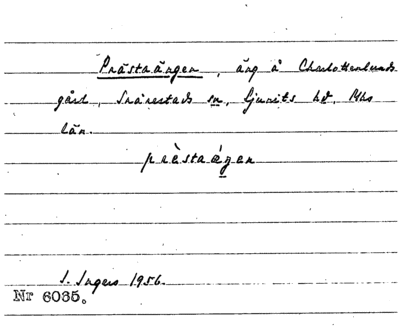 Prästaängen, äng å Charlottenlunds
gård, Snårestads sn, Ljunits hd, Mhs
län.
prè̀staéngen
I. Ingers 1956.
Nr 6035.